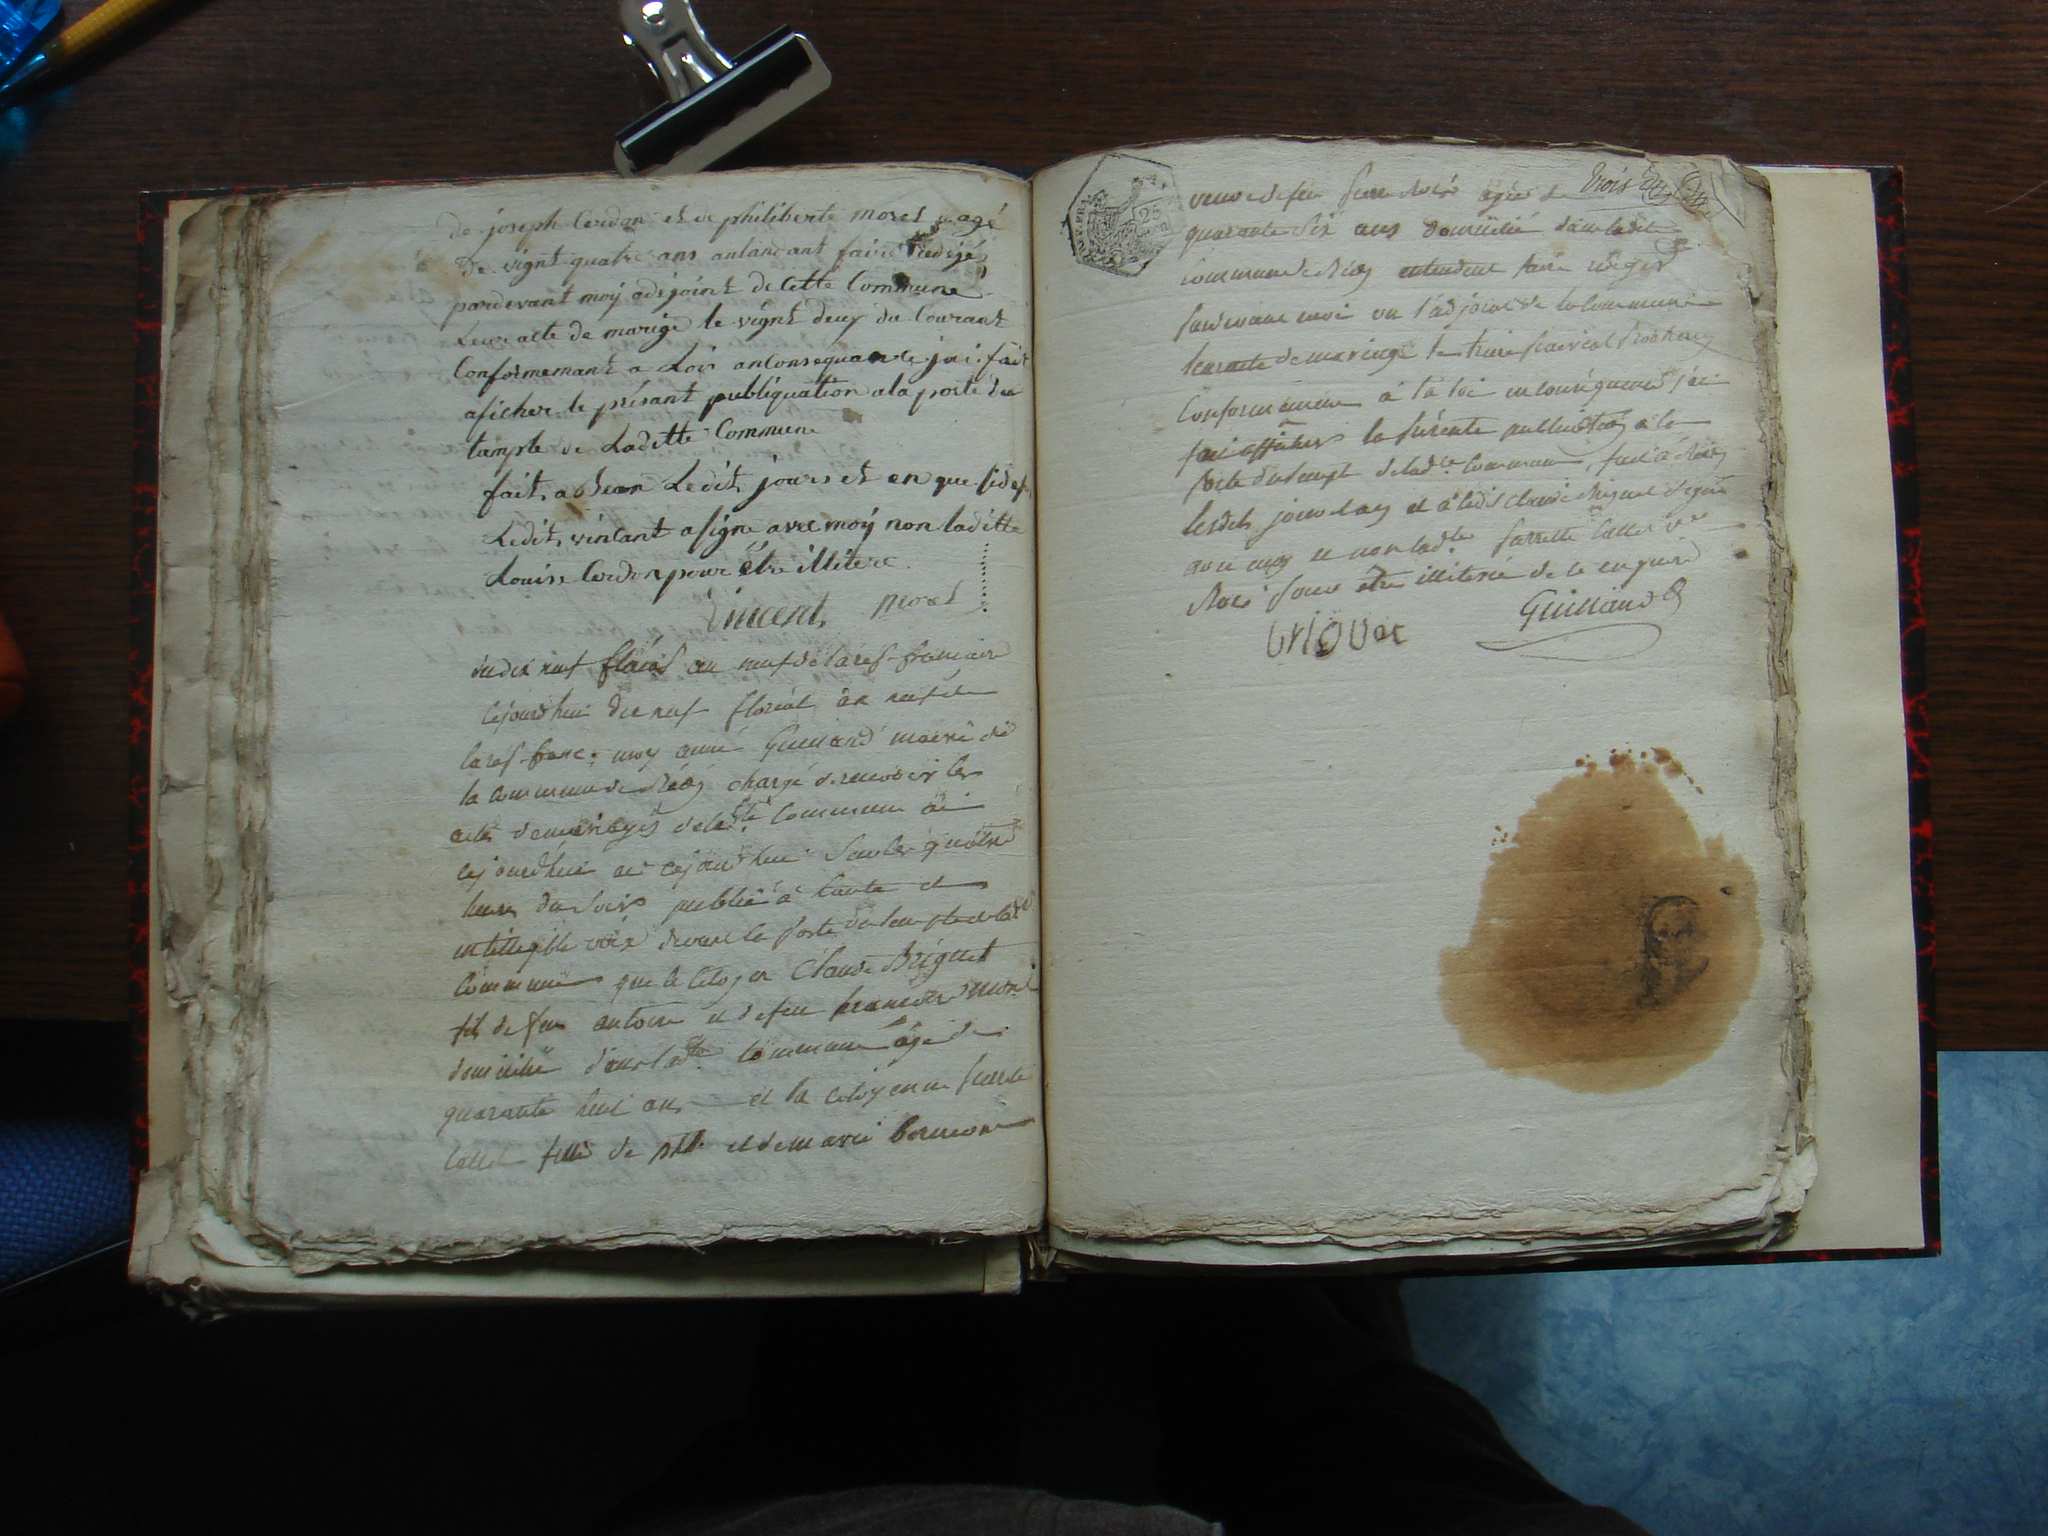 de joseph Cerdon et de philiberte morel agé
de vignt quatre ans antandant faire redijé
pardevant moÿ adsjoint de Cette Commune
Leur acte de marige le vignt deux du Courant
Conformemant a Loix anconsequance jai fait
aficher le présant publiquation a la porte du
tample de Laditte Commune
fait a Bean Ledit jours et an que sides
Ledit vincant a signe avec moÿ non laditte
Louise Cerdon pour être illitere
Vincent morel
du dix neuf floréal an neuf de la rep. francaise
cejourdhui dix neuf floréal an neuf de
la rep. franc. moy aimé Guilland maire de
la commune de chargé de recevoir les
actes de mariages de lad.te Commune ai
cejourdhui sur les quatre
heures du soir publié à haute et
intelligible voix devant la porte du temple de lad.
Commune que le Citoyen Claude Briguet
fils de feu antoine et de feu francoise morel
domicilié dans lad.te Commune âgé de
quarante huit ans et la citoyenne
fille de et de marie
trois
veuve de feu agée de
quarante six ans domicilié dans ladite
commune de entendent faire rédiger
pardevant moi ou l'adjoint de la Commune
leur acte de mariage le treize prairial prochain
Conformément à la loi en conséquence j'ai
fait afficher la présente publication à la
porte du temple de lad.te Commune fait à
lesdits jour et an et à ledit Claude Briguet signé
avec moy et non lad.te
pour être illiterée de ce enquise
briquet Guilland
25